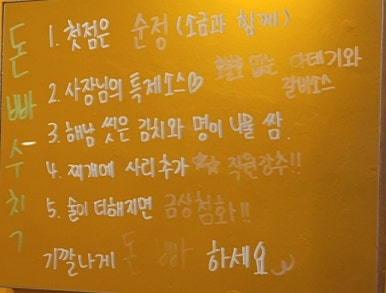 돈빠수치기
1. 첫점은 순정 (소금과 함께)
2. 사장님의 특제소스♡
없는 다데기와
갈비소스
3. 해남 씻은 김치와 명이 나물 쌈
4. 찌개에 사리추가 ☆☆ 직원강추!!
5. 술이 더해지면 금상첨화!!
기깔나게 돈 빠 하세요